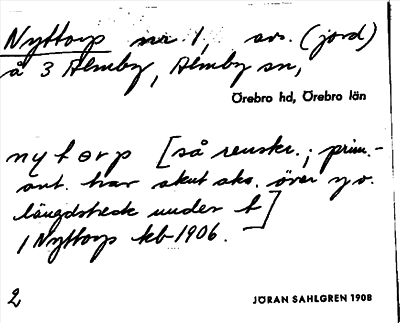 Nyttorp nr. 1, avs. (jord)
å 3 Almby, Almby sn,
Örebro hd, Örebro län
nytorp [så renskr.; prim.-
ant. har akut aks. över y o.
längdstreck under t]
1 Nyttorp kb 1906.
2 JÖRAN SAHLGREN 1908